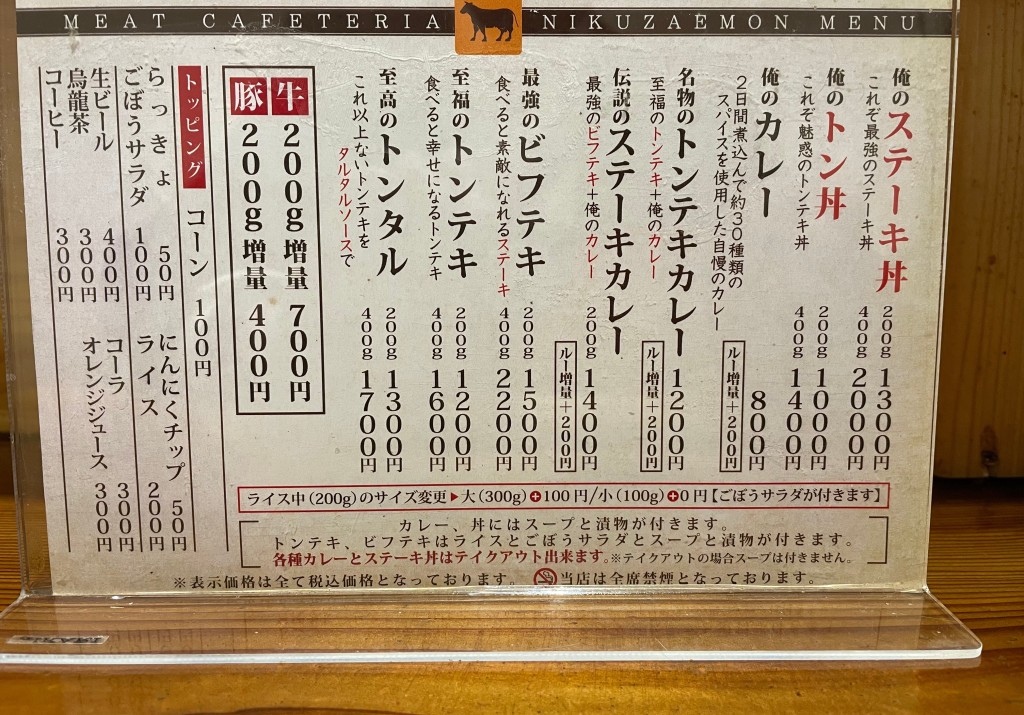 MEAT CAFETERIA NIKUZAEMON MENU
俺のステーキ丼
これぞ最強のステーキ丼
200g 1300円
400g 2000円
俺のトン丼
これぞ魅惑のトンテキ丼
200g 1000円
400g 1400円
俺のカレー
2日間煮込んで約30種類の
スパイスを使用した自慢のカレー
800円
ルー増量+200円
名物のトンテキカレー
至福のトンテキ+俺のカレー
1200円
ルー増量+200円
伝説のステーキカレー
最強のビフテキ+俺のカレー
200g 1400円
ルー増量+200円
最強のビフテキ
食べると素敵になれるステーキ
200g 1500円
400g 2200円
至福のトンテキ
食べると幸せになるトンテキ
200g 1200円
400g 1600円
至高のトンタル
これ以上ないトンテキを
タルタルソースで
200g 1300円
400g 1700円
牛 200g 増量 700円
豚 200g 増量 400円
トッピング
コーン 100円
らっきょ 50円
にんにくチップ 50円
ごぼうサラダ 100円
ライス 200円
生ビール 400円
コーラ 300円
烏龍茶 300円
オレンジジュース 300円
コーヒー 300円
ライス中(200g)のサイズ変更▶大(300g)+100円/小(100g)+0円【ごぼうサラダが付きます】
カレー、丼にはスープと漬物が付きます。
トンテキ、ビフテキはライスとごぼうサラダとスープと漬物が付きます。
各種カレーとステーキ丼はテイクアウト出来ます。※テイクアウトの場合スープは付きません。
※表示価格は全て税込価格となっております。 当店は全席禁煙となっております。